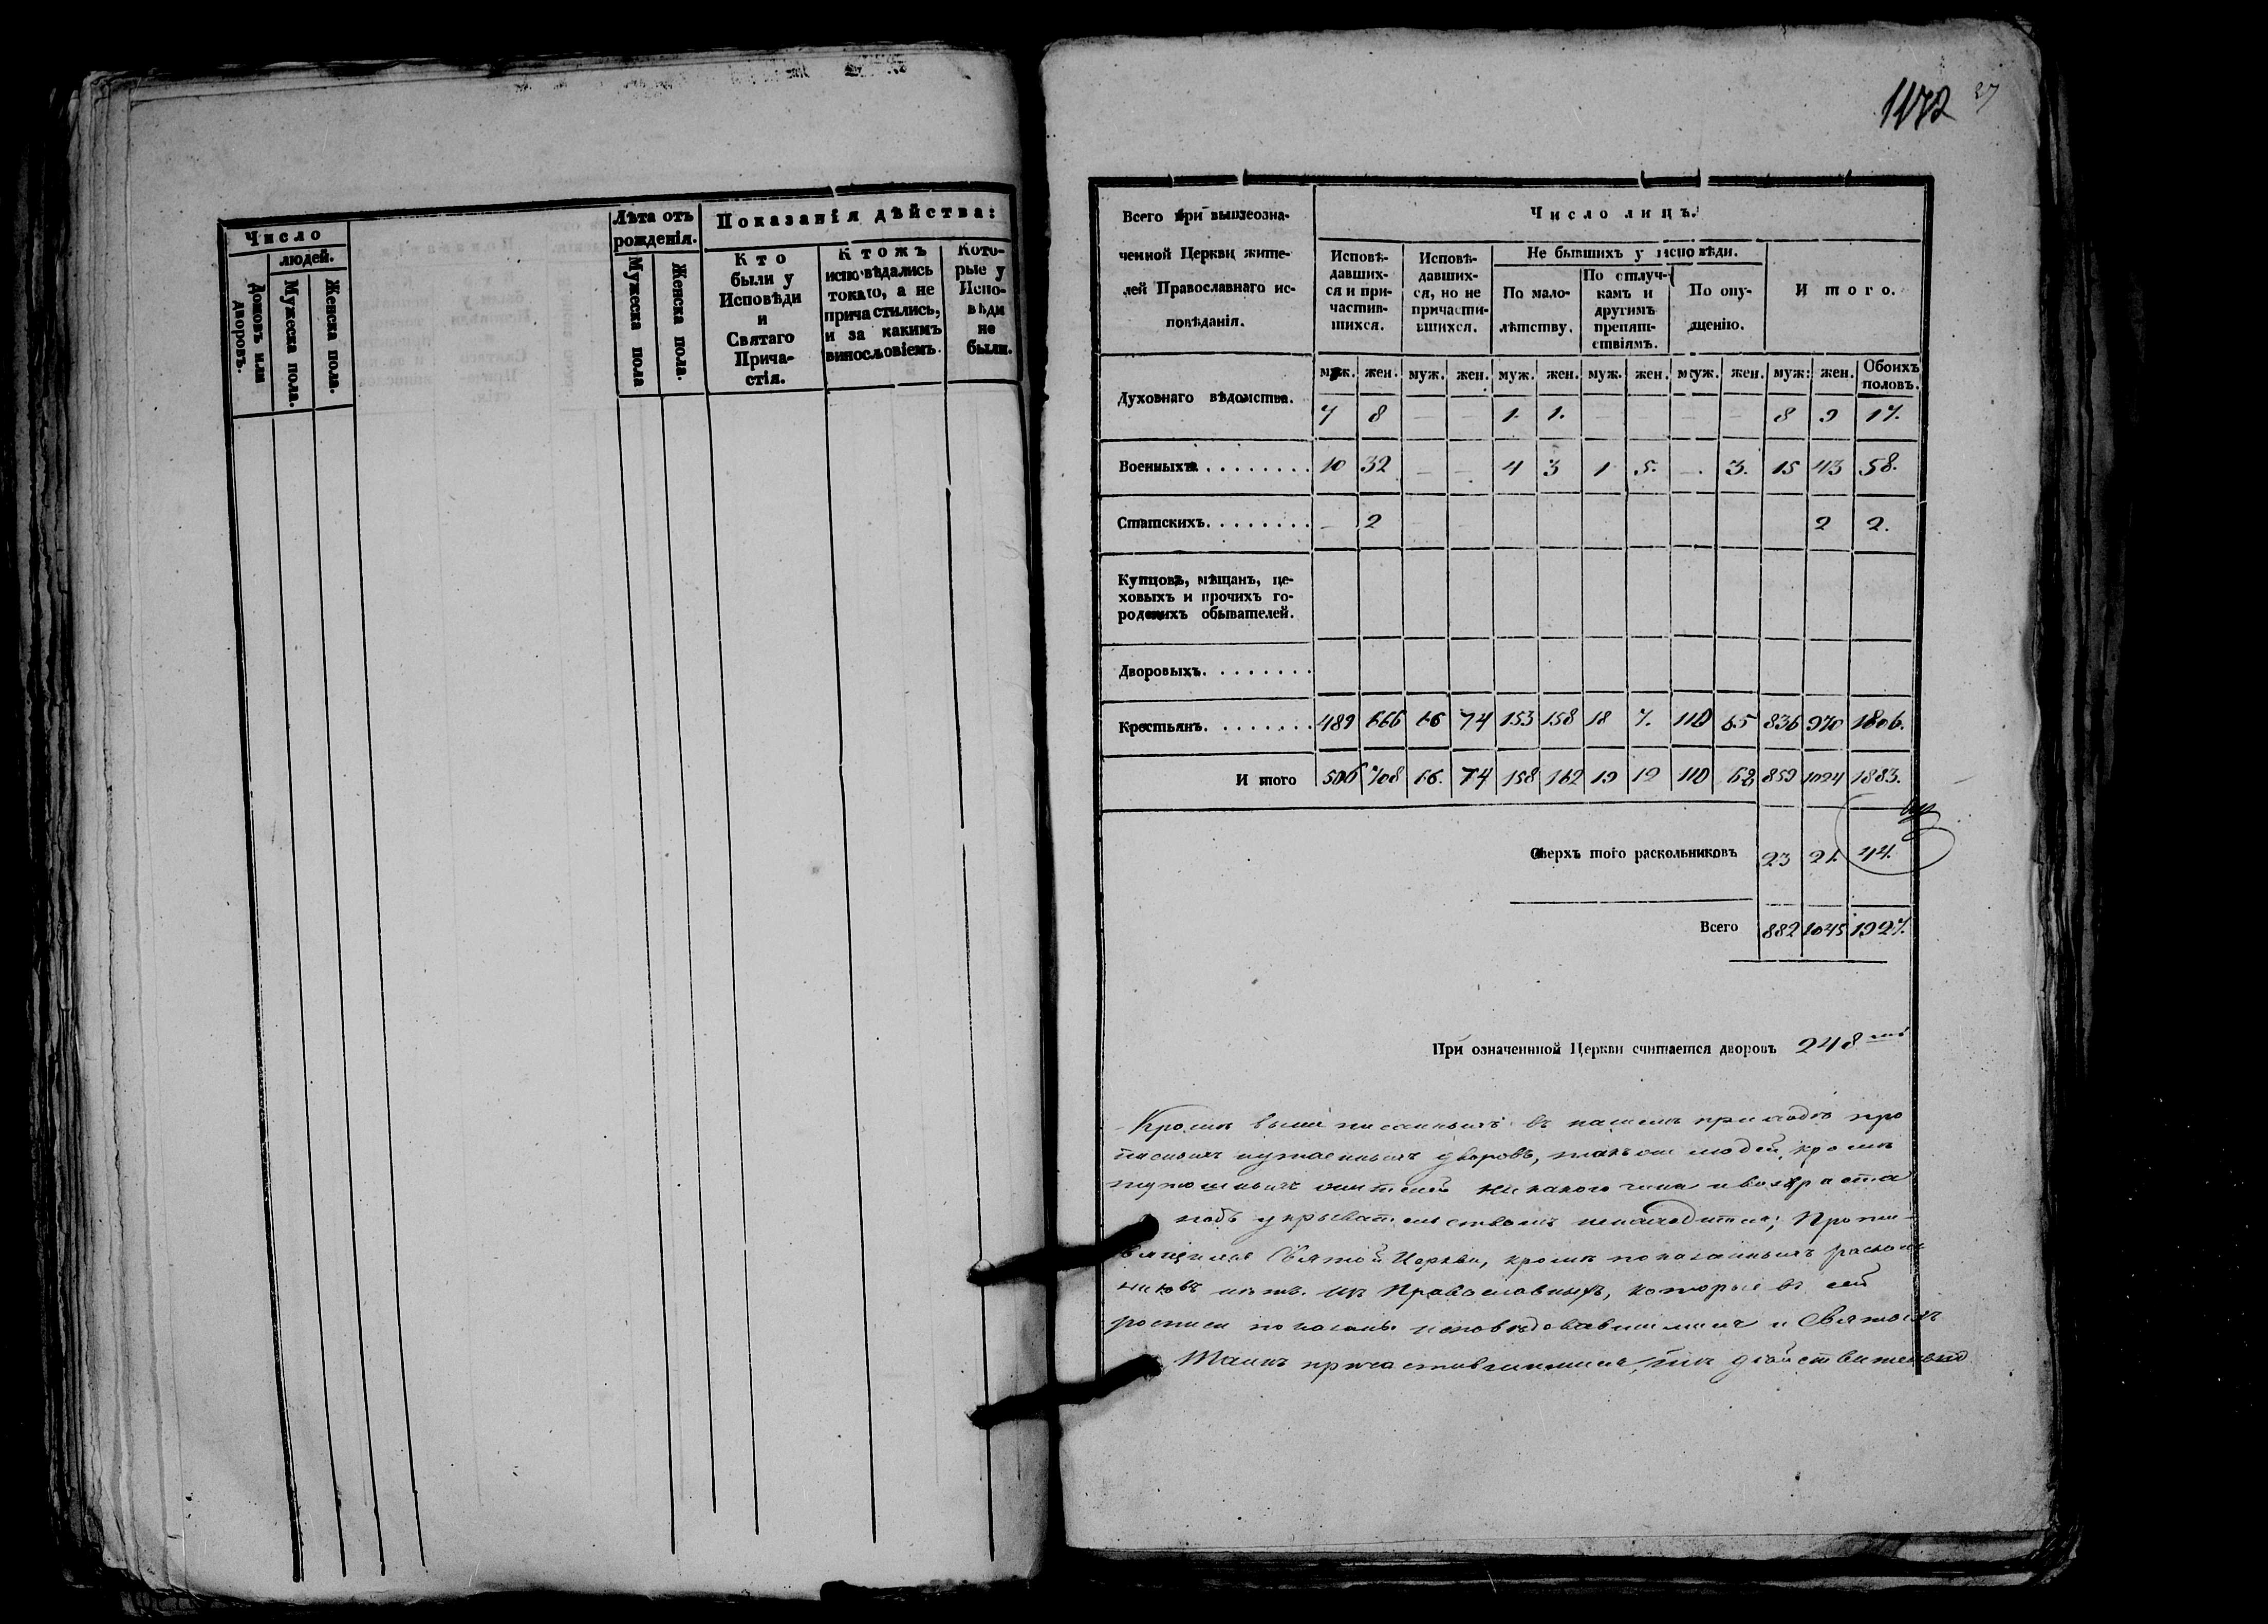 Число
людей.
домовъ или дворовъ.
Мужеска пола.
Женска пола.
Лѣта отъ
рожденія.
Мужеска пола
Женска пола.
Показанія дѣйства:
Кто
были у
Исповѣди
и
Святаго
Прича-
стія.
Ктожъ
исповѣдались
токмо, а не
причастились,
и за какимъ
винословіемъ.
Кото-
рые у
Испо-
вѣди
не
были.
1172 27
Всего при вышеозна-
ченной Церкви жите-
лей Православнаго ис-
повѣданія.
Число лицъ.
Исповѣ-
давших-
ся и при-
частив-
шихся.
Исповѣ-
давших-
ся, но не
причасти-
вшихся.
Не бывшихъ у исповѣди.
По мало-
лѣтству.
По отлуч-
камъ и
другимъ
препят-
ствіямъ.
По опу-
щенію.
И того.
муж. жен. муж. жен. муж. жен. муж. жен. муж. жен. муж: жен. Обоихъ половъ.
Духовнаго вѣдомства. 7 8 — — 1. 1. — — — — 8 9 17.
Военныхъ. . . . . . . . . 10 32 — — 4 3 1 5. — 3. 15 43 58.
Статскихъ. . . . . . . . — 2 2 2.
Купцовъ, мѣщанъ, це-
ховыхъ и прочихъ го-
родскихъ обывателей.
Дворовыхъ. . . . . . . .
Крестьянъ. . . . . . . . 489 666 66 74 153 158 18 7. 110 65 836 970 1806.
И того 506 708 66. 74 158 162 19 12 110 68 859 1024 1883.
Сверхъ того раскольниковъ 23 21. 44.
Всего 882 1045 1927.
При означеннной Церкви считается дворовъ 248мъ
Кромѣ выше писанныхъ въ нашемъ приходѣ про
писныхъ и утаенныхъ дворовъ, такъ же людей, кромѣ
жителей никакого чина и возраста
подъ укрывательствомъ ненаходится; Проти-
вящихся Святой Церкви, кромѣ показанныхъ расколь
никовъ нѣтъ. Православныхъ, которые въ сей
росписи показаны исповѣдовавшимися и Святыхъ
Таинъ причастившимися, тѣ дѣйствительно